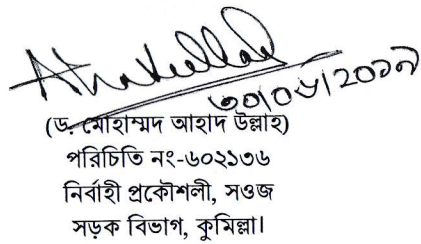 ৩০/০৬/২০১৯
(ড. মোহাম্মদ আহাদ উল্লাহ)
পরিচিতি নং-৬০২১৩৬
নির্বাহী প্রকৌশলী, সওজ
সড়ক বিভাগ, কুমিল্লা।